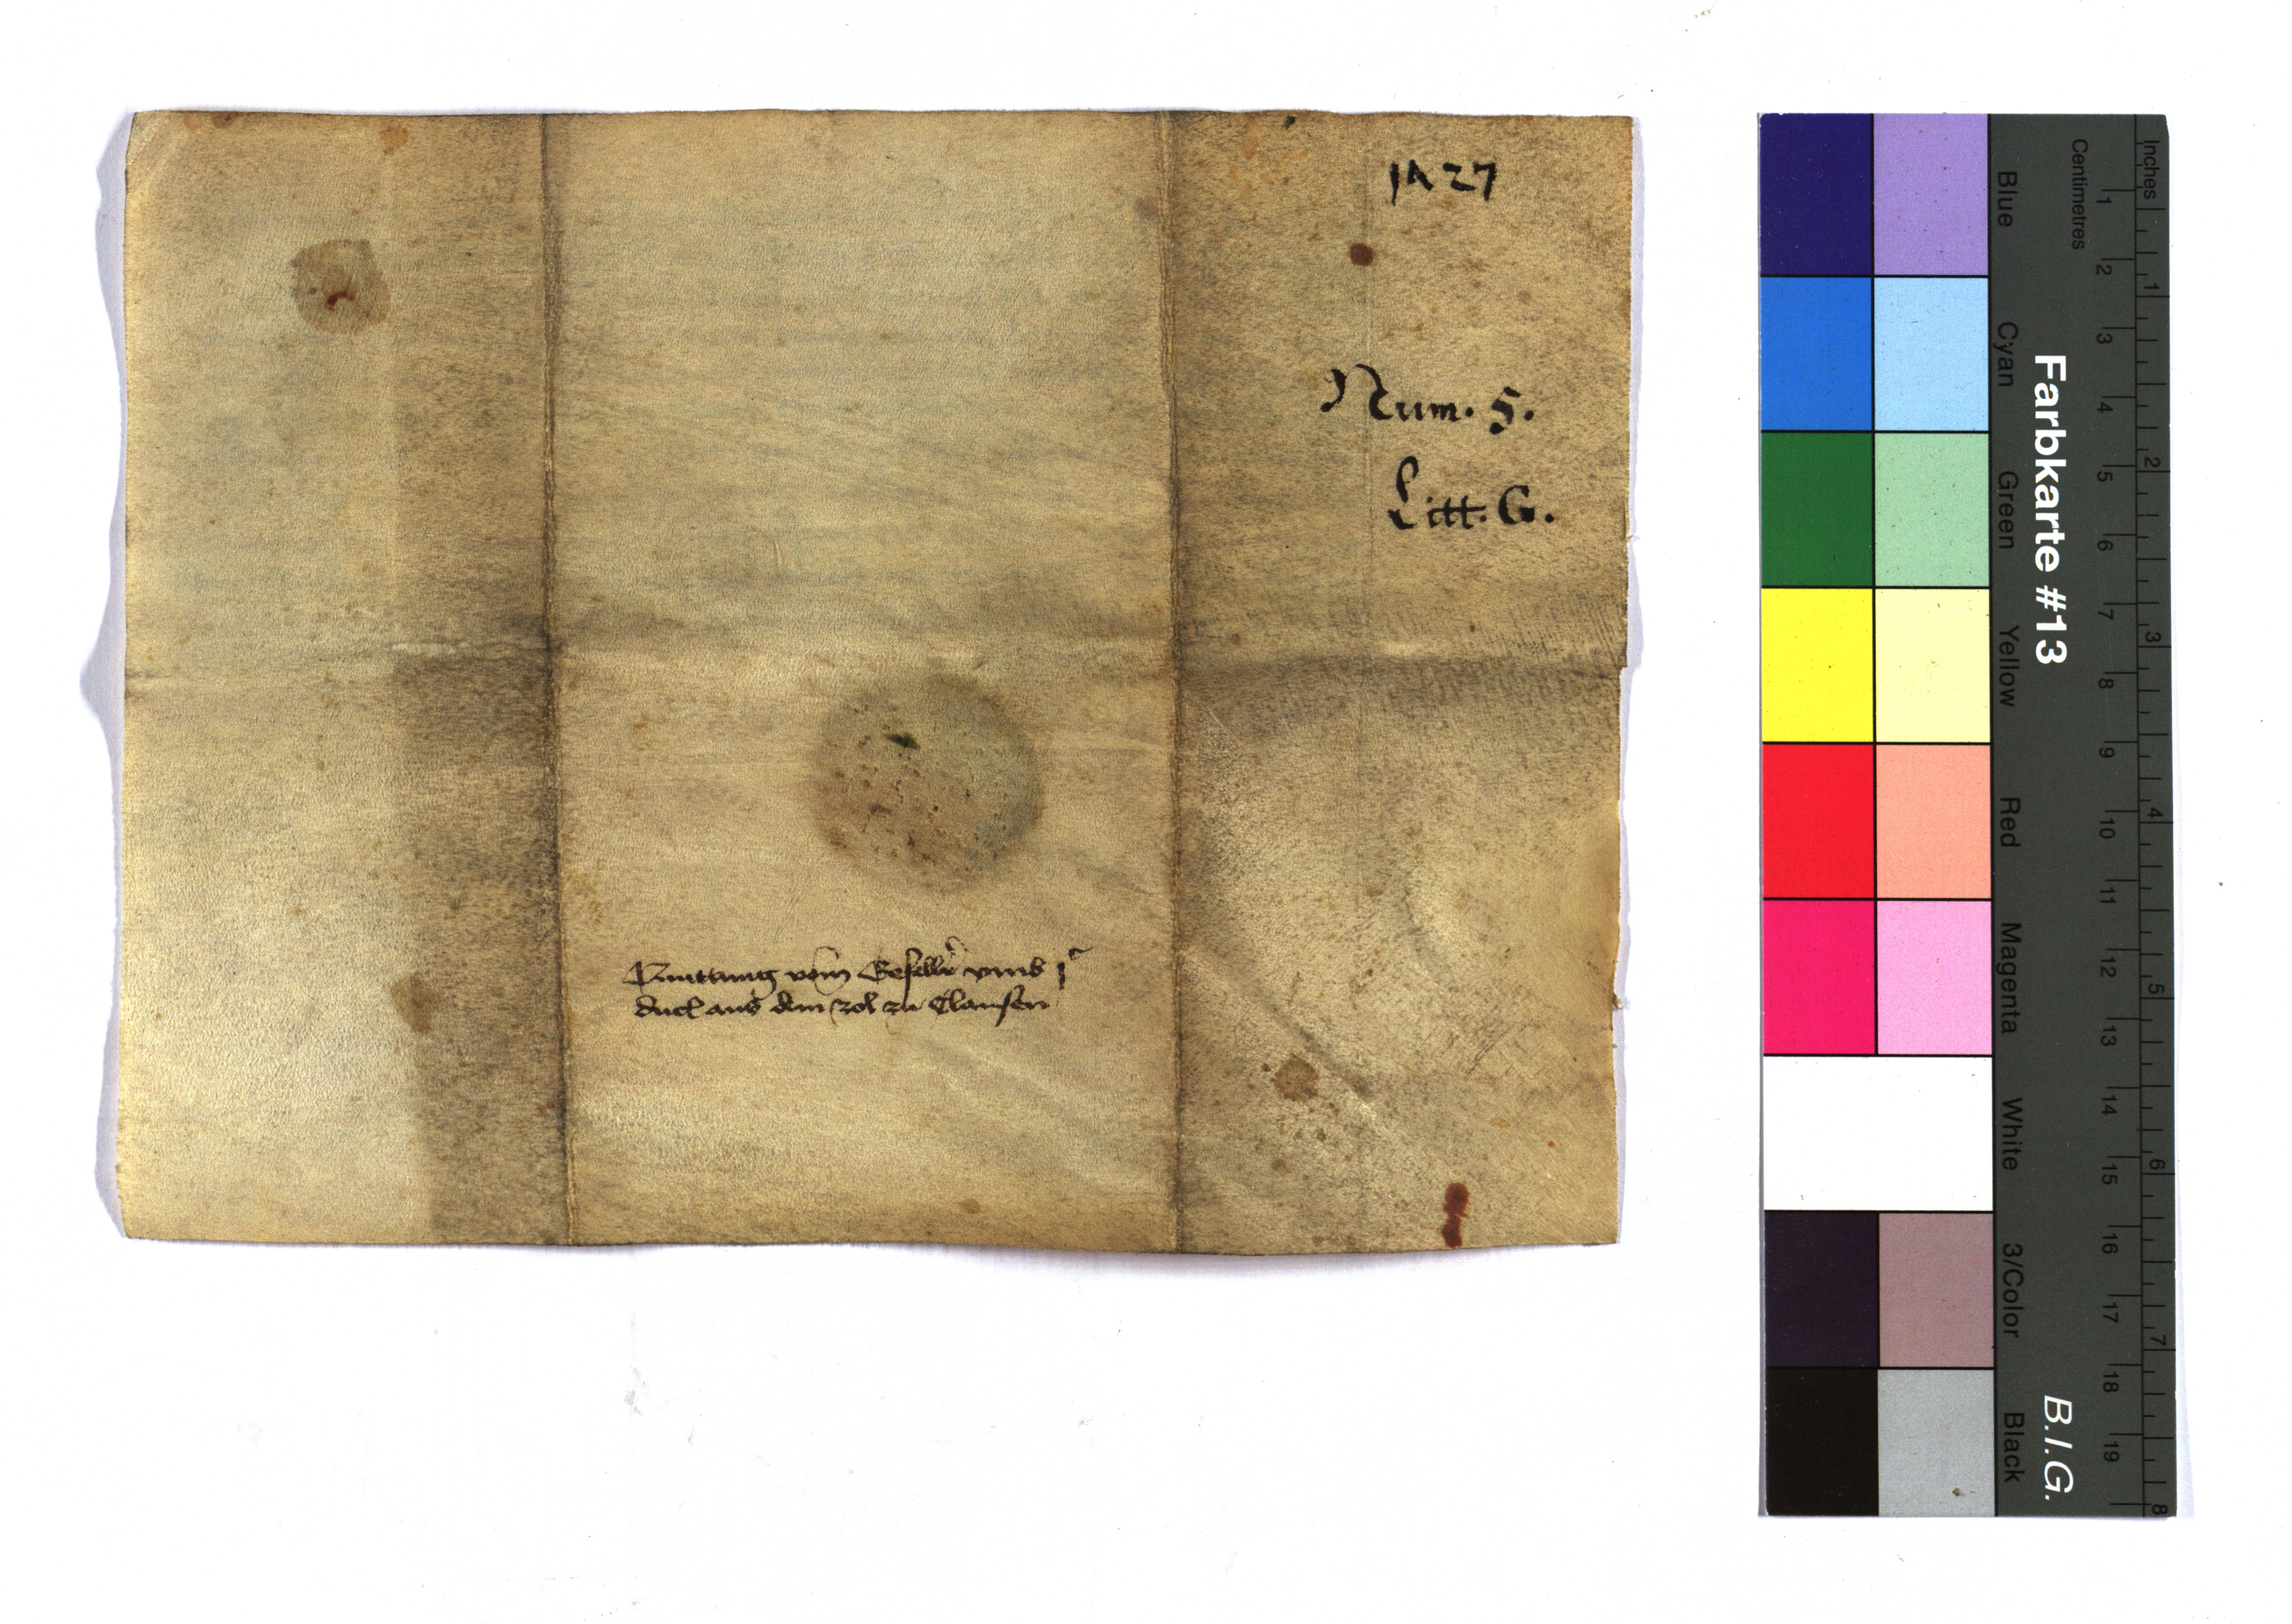 1427
Num. 5.
Litt. G.
Quittung vom Gesellr umb jc
duct aus dem zol zu Clausen
Blue
Cyan
Green
Yellow
Red
Magenta
White
3/Color
Black
Farbkarte #13
B.I.G.
Centimetres
1 2 3 4 5 6 7 8 9 10 11 12 13 14 15 16 17 18 19
Inches
1 2 3 4 5 6 7 8